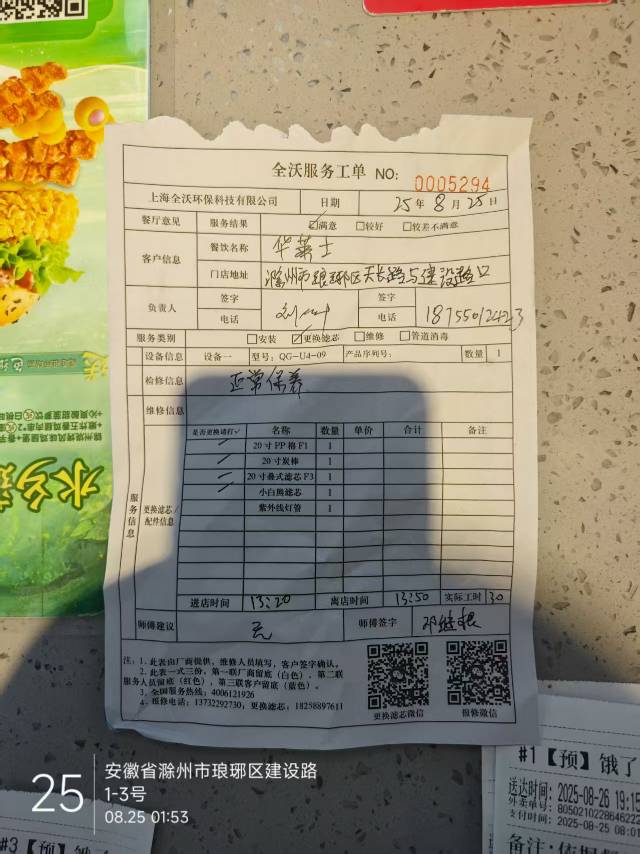 全沃服务工单 NO: 0005294
上海全沃环保科技有限公司 日期 25年8月25日
餐厅意见 服务结果 ☑满意 □较好 □较差不满意
客户信息 餐饮名称 华莱士
门店地址 滁州市琅琊区天长路与建设路口
负责人 签字 签字
电话 电话 18755012423
服务类别 □安装 ☑更换滤芯 □维修 □管道消毒
设备信息 设备一 型号: QG-U4-09 产品序列号: 数量 1
检修信息 正常保养
维修信息
服务信息
更换滤芯/配件信息
是否更换请打✓ 名称 数量 单价 合计 备注
20寸PP棉F1 1
20寸炭棒 1
20寸叠式滤芯F3 1
小白熊滤芯 1
紫外线灯管 1
进店时间 13:20 离店时间 13:50 实际工时 30
师傅建议 无 师傅签字 邓继根
注: 1、此表由厂商提供, 维修人员填写, 客户签字确认。
2、此表一式三份, 第一联厂商留底(白色), 第二联
服务人员留底(红色), 第三联客户留底(蓝色)。
3、全国服务热线: 4006121926
4、报修电话: 13732292730; 更换滤芯: 18258897611
更换滤芯微信 报修微信
25
安徽省滁州市琅琊区建设路
1-3号
08.25 01:53
#1【预】饿了
送达时间: 2025-08-26 19:15
外卖单号: 8050210228646222
支付时间: 2025-08-25 08:01
#3【预】饿
水乡